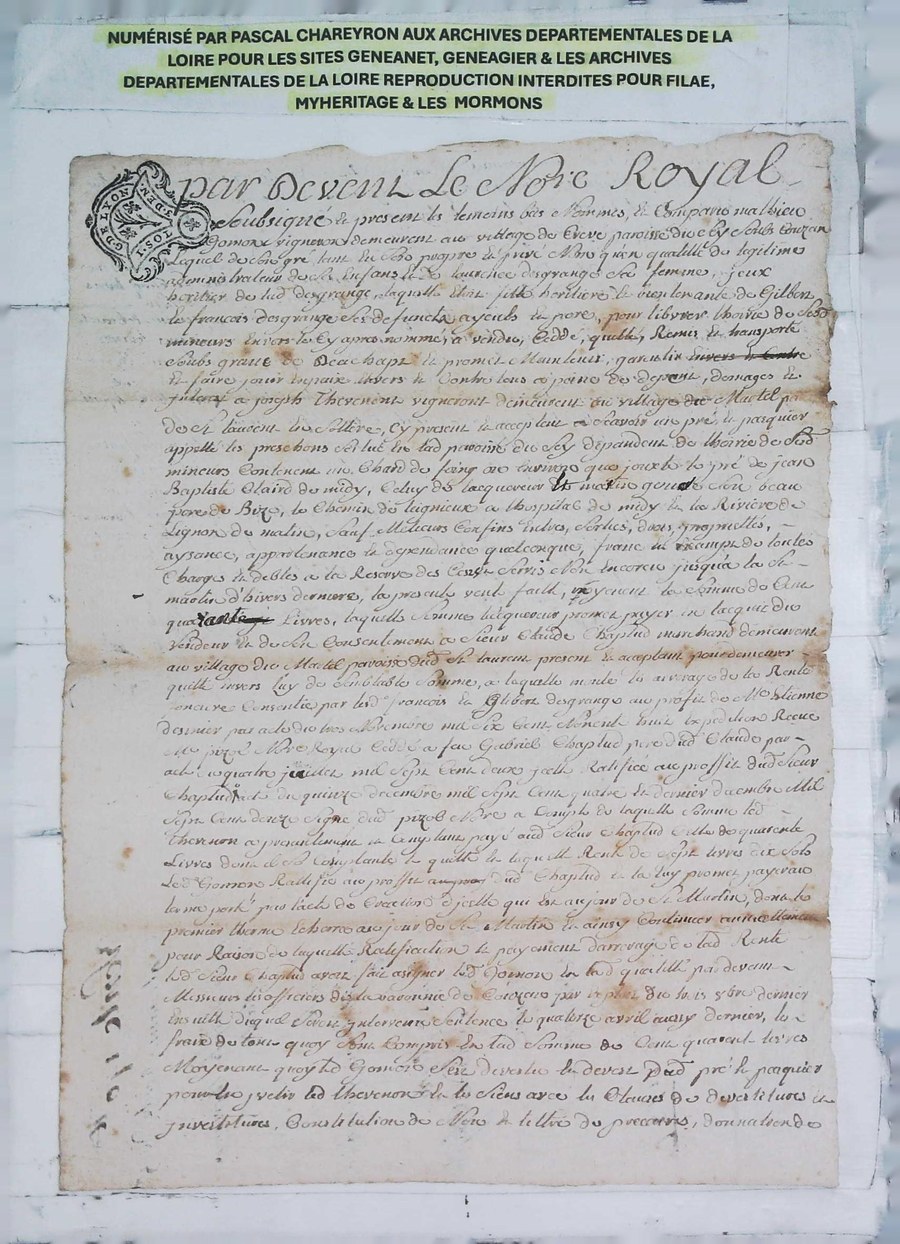 NUMÉRISÉ PAR PASCAL CHAREYRON AUX ARCHIVES DEPARTEMENTALES DE LA
LOIRE POUR LES SITES GENEANET, GENEAGIER & LES ARCHIVES
DEPARTEMENTALES DE LA LOIRE REPRODUCTION INTERDITES POUR FILAE,
MYHERITAGE & LES MORMONS
par Devent Le Nore Royal
G. DE LYON
Soubsigné & present les temoins bas Nommes, & Comparu mathieu
Gomon vigneron demeurent au village de Creve paroisse du Sey Soubs Couzan
Lequel de Son gré tant en Son propre & privé Nom qu'en qualitté de legitime
administrateur de Ses Enfans & de desgrange Sa femme, yeux
heritier de lad desgrange, laquelle Etoit fille heritiere & bientenante de Gilbert
& francois desgrange Ses defuncts ayeuls & pere, pour libvrer l'hoirie de Sesd
mineurs Envers le Cy apres nommé, a vendu, Ceddé, quitté, Remis & transporté
Soubs grace de Reachapt & promet Maintenir, garentir envers & Contre
Et faire jouir Enpaix Envers & Contre tous a peine de depent, domages &
jnterest a joseph Thevenent vigneront demeurent au village du Martel
de St laurent En Sollere, Cy present & acceptent a Scavoir un pré, & pasquier
appellé les preschons Situé en lad paroisse du Sey dependent de l'hoirie de Sesd
mineurs Contenent un Chard de foing ou Environ que jouxte le pré de jean
Baptiste Claird de midy, Celuy de lacquereur de matin Son beau
pere de Bize, le Chemin de Leignieux a l'hospital de midy & la Riviere de
Lignon de matin, Sauf Meilieurs Confins Entres, Sorties, droits, proprietés,
aysance, appartenance & dependance quelconque, franc & Exampt de toutes
Charges & debtes a la Reserve des Cens & Servis Non Encoreu jusqu'a la St
martin d'hivers derniere, la presente vente faitte, moyenent la Somme de Cent
quarante Livres, laquelle Somme lacquereur promet payer en lacquit du
vendeur & de Son Consentement a Sieur Claude Chaplud marchand demeurent
au village du Martel paroisse dud St laurent present & acceptant pour demeurer
quitte envers Luy de Semblable Somme, a laquelle monte les arerage de la Rente
Consentie par led francois & Gilbert desgrange au profit de Me Estienne
dernier par acte du trois Novembre mil Six Cent Nonente huit Expedition Receu
Me pizol Nore Royal Ceddé a feu Gabriel Chaplud pere dud Claude par
acte du quatre juillet mil Sept Cent deux jcelle Ratifiée au proffit dud Sieur
Chaplud act du quinze decembre mil Sept Cent quatre & dernier decembre Mil
Sept Cent douze Signé dud pizol Nore a Compte de laquelle Somme led
Thevenon a presentement & Comptant payé aud Sieur Chaplud Celle de quarente
Livres dont il S'est Contanté & quitté & laquelle Rente de Sept livres dix Sols
Led Gomon Rattifie au proffit dud Chaplud & la luy promet payer au
terme porté par l'acte de Creation d'jcelle qui Est au jour de St Martin, dont le
premier terme Echera au jour de St Martin & ainsy Continuer annuellement
pour Raison de laquelle Rattification & payement darrerage de lad Rente
led Sieur Chaplud avoit fait asigner led Gomon En lad qualitté par devent
Messieurs les officiers de la baronnie de Couzan par Exploit du trois 9bre dernier
Ensuitte duquel Seroit Intervenue Sentence le quatorze avril aussy dernier, les
fraix de tout quoy Sont Compris En lad Somme de Cent quarent livres
Moyenent quoy led Gomon S'est devestu & devest dud pré & pasquier
pour En jvestir led thevenon & les Siens avec les Clauses de devestitures &
jnvestitures, Constitution de Nom & tiltre de precaires, donnation de